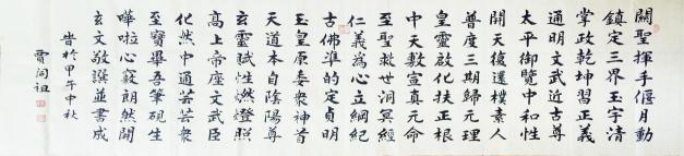 關聖揮手偃月動
鎮定三界玉宇清
掌政乾坤習正義
通明文武近古尊
太平御覽中和性
開天復還樸素人
普度三期歸元理
皇靈啟化扶正根
中天數宣真元命
至聖救世洞冥經
仁義為心立綱紀
古佛準的定貞明
玉皇原泰衆神首
天道本自陰陽尊
玄靈賦性燃燈照
高上帝座文武臣
化然中通芸芸衆
至寶畢吾筆硯生
嘩啦心竅朗然開
玄文敬譔並書成
旹於甲午中秋
賈問祖